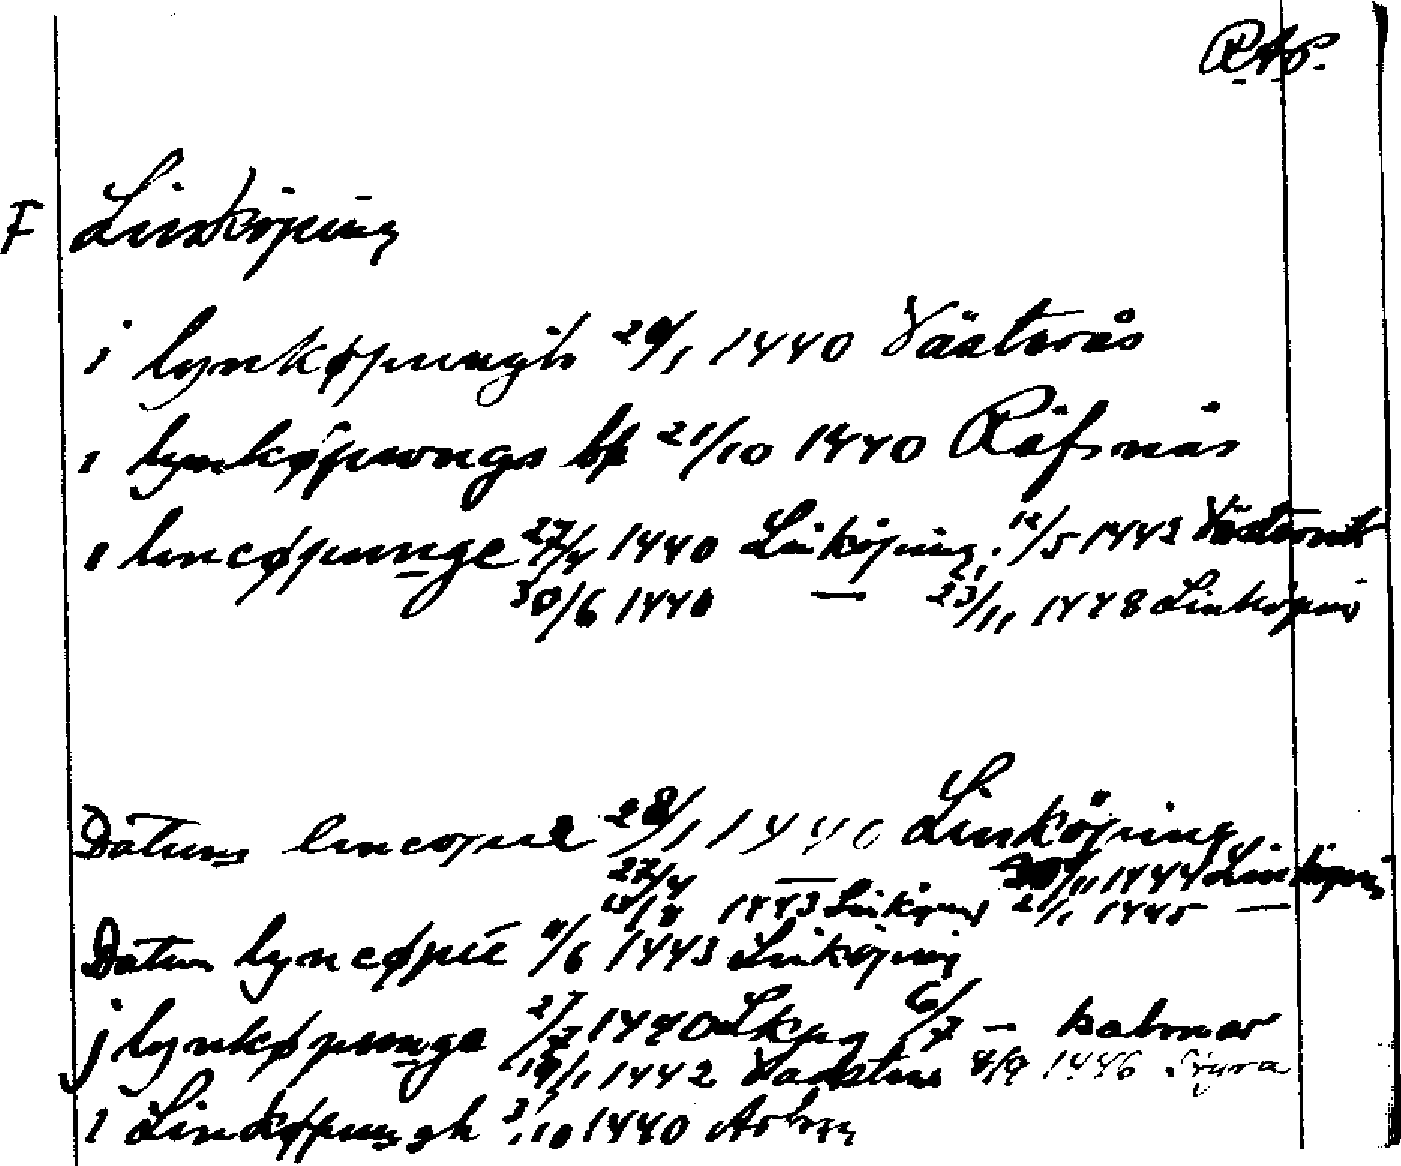 RAp.
F Linköping
i lynkøpungh 29/1 1440 Västerås
i lynkøpungs bp 21/10 1440 Räfsnäs
i lincøpunge 27/4 1440 Linköping, 12/5 1443
30/6 1440 — 23/11 1448 Linköping
Datum lincopie 28/1 1440 Linköping
27/4 — 30/11 1444 Linköping
1443 Linköping 21/1 1445 —
Datum lyncøpie 11/6 1443 Linköping
j lynkøpunge 27/7 1440 Lkpg 6/7 — Kalmar
19/1 1442 Vadstena 4/9 1446 Styra
i Linkøpungh 3/10 1440 Arboga